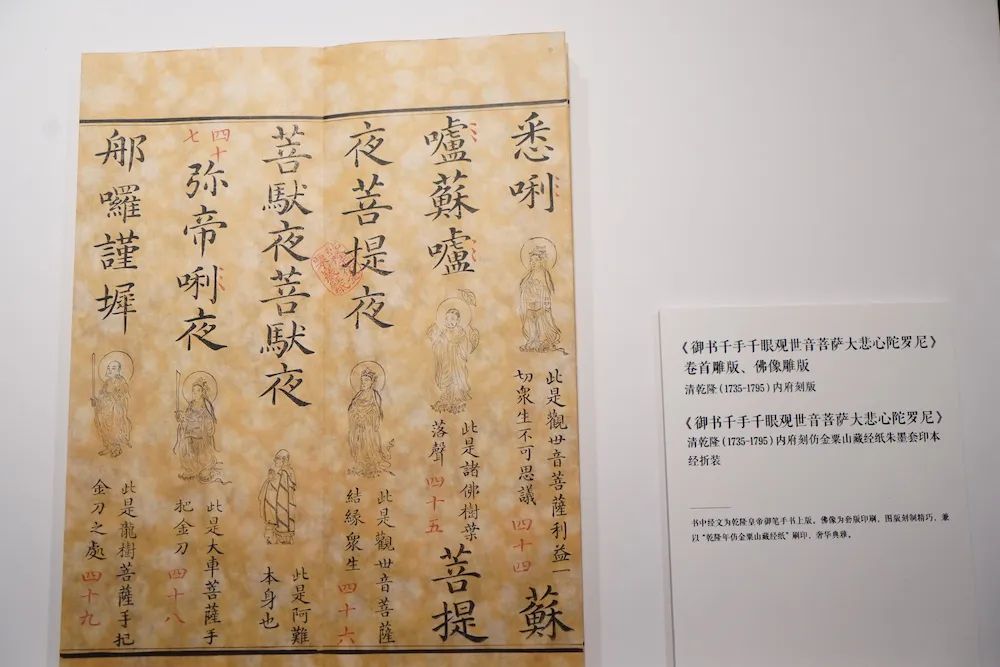 悉唎
此是觀世音菩薩利益一
切衆生不可思議 四十四
蘇
嚧蘇嚧
此是諸佛樹葉
落聲 四十五
菩提
夜菩提夜
此是觀世音菩薩
結緣衆生 四十六
菩馱夜菩馱夜
此是阿難
本身也
四十七
弥帝唎夜
此是大車菩薩手
把金刀 四十八
那囉謹墀
此是龍樹菩薩手把
金刀之處 四十九
《御书千手千眼观世音菩萨大悲心陀罗尼》
卷首雕版、佛像雕版
清乾隆(1735-1795)内府刻版
《御书千手千眼观世音菩萨大悲心陀罗尼》
清乾隆(1735-1795)内府刻仿金粟山藏经纸朱墨套印本
经折装
书中经文为乾隆皇帝御笔手书上版，佛像为套版印刷，图版刻制精巧，兼
以“乾隆年仿金粟山藏经纸”刷印，奢华典雅。